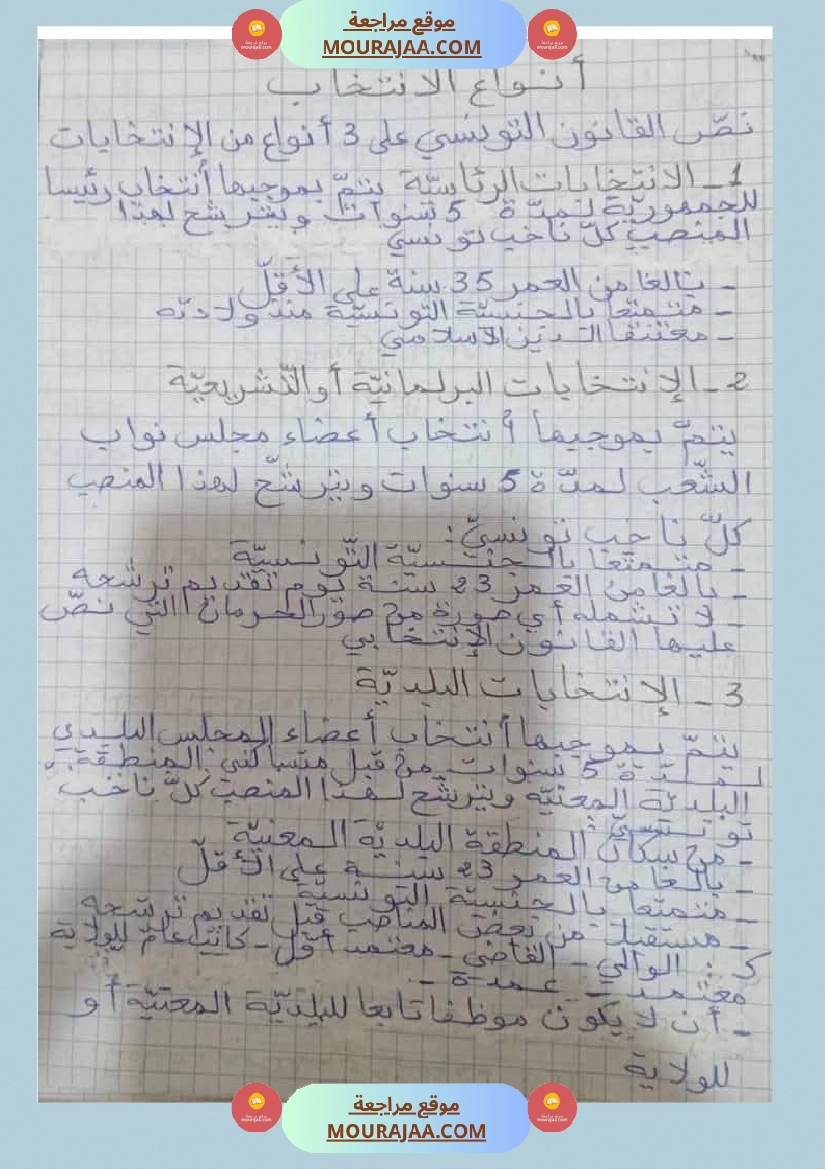 موقع مراجعة
MOURAJAA.COM
أنواع الانتخاب
نصّ القانون التونسي على 3 أنواع من الإنتخابات
1 - الانتخابات الرئاسيّة يتمّ بموجبها أنتخاب رئيسا
للجمهوريّة لمدّة 5 سنوات ويترشح لهذا
المنصب كلّ ناخب تونسي
- بالغا من العمر 35 سنة على الأقلّ
- متمتعا بالجنسيّة التونسيّة منذ ولادته
- معتنقا الدين الاسلامي
2 - الإنتخابات البرلمانيّة أو التّشريعيّة
يتمّ بموجبها أنتخاب أعضاء مجلس نواب
الشّعب لمدّة 5 سنوات ويترشّح لهذا المنصب
كلّ ناخب تونسيّ:
- متمتعا بالجنسيّة التّونسيّة
- بالغا من العمر 23 سنة يوم تقديم ترشحه
- لا تشمله أي صورة من صور الحرمان التي نصّ
عليها القانون الإنتخابي
3 - الإنتخابات البلديّة
يتمّ بموجبها أنتخاب أعضاء المجلس البلدي
لمدّة 5 سنوات من قبل متساكني المنطقة
البلديّة المعنيّة ويترشّح لهذا المنصب كلّ ناخب
تونسيّ:
- من سكان المنطقة البلديّة المعنيّة
- بالغا من العمر 23 سنة على الأقلّ
- متمتعا بالجنسيّة التونسيّة
- مستقيلا من بعض المناصب قبل تقديم ترشحه
كـ: الوالي - القاضي - معتمد أوّل - كاتب عام للولاية
معتمد - عمدة -
- أن لا يكون موظفا تابعا للبلديّة المعنيّة أو
للولاية
موقع مراجعة
MOURAJAA.COM